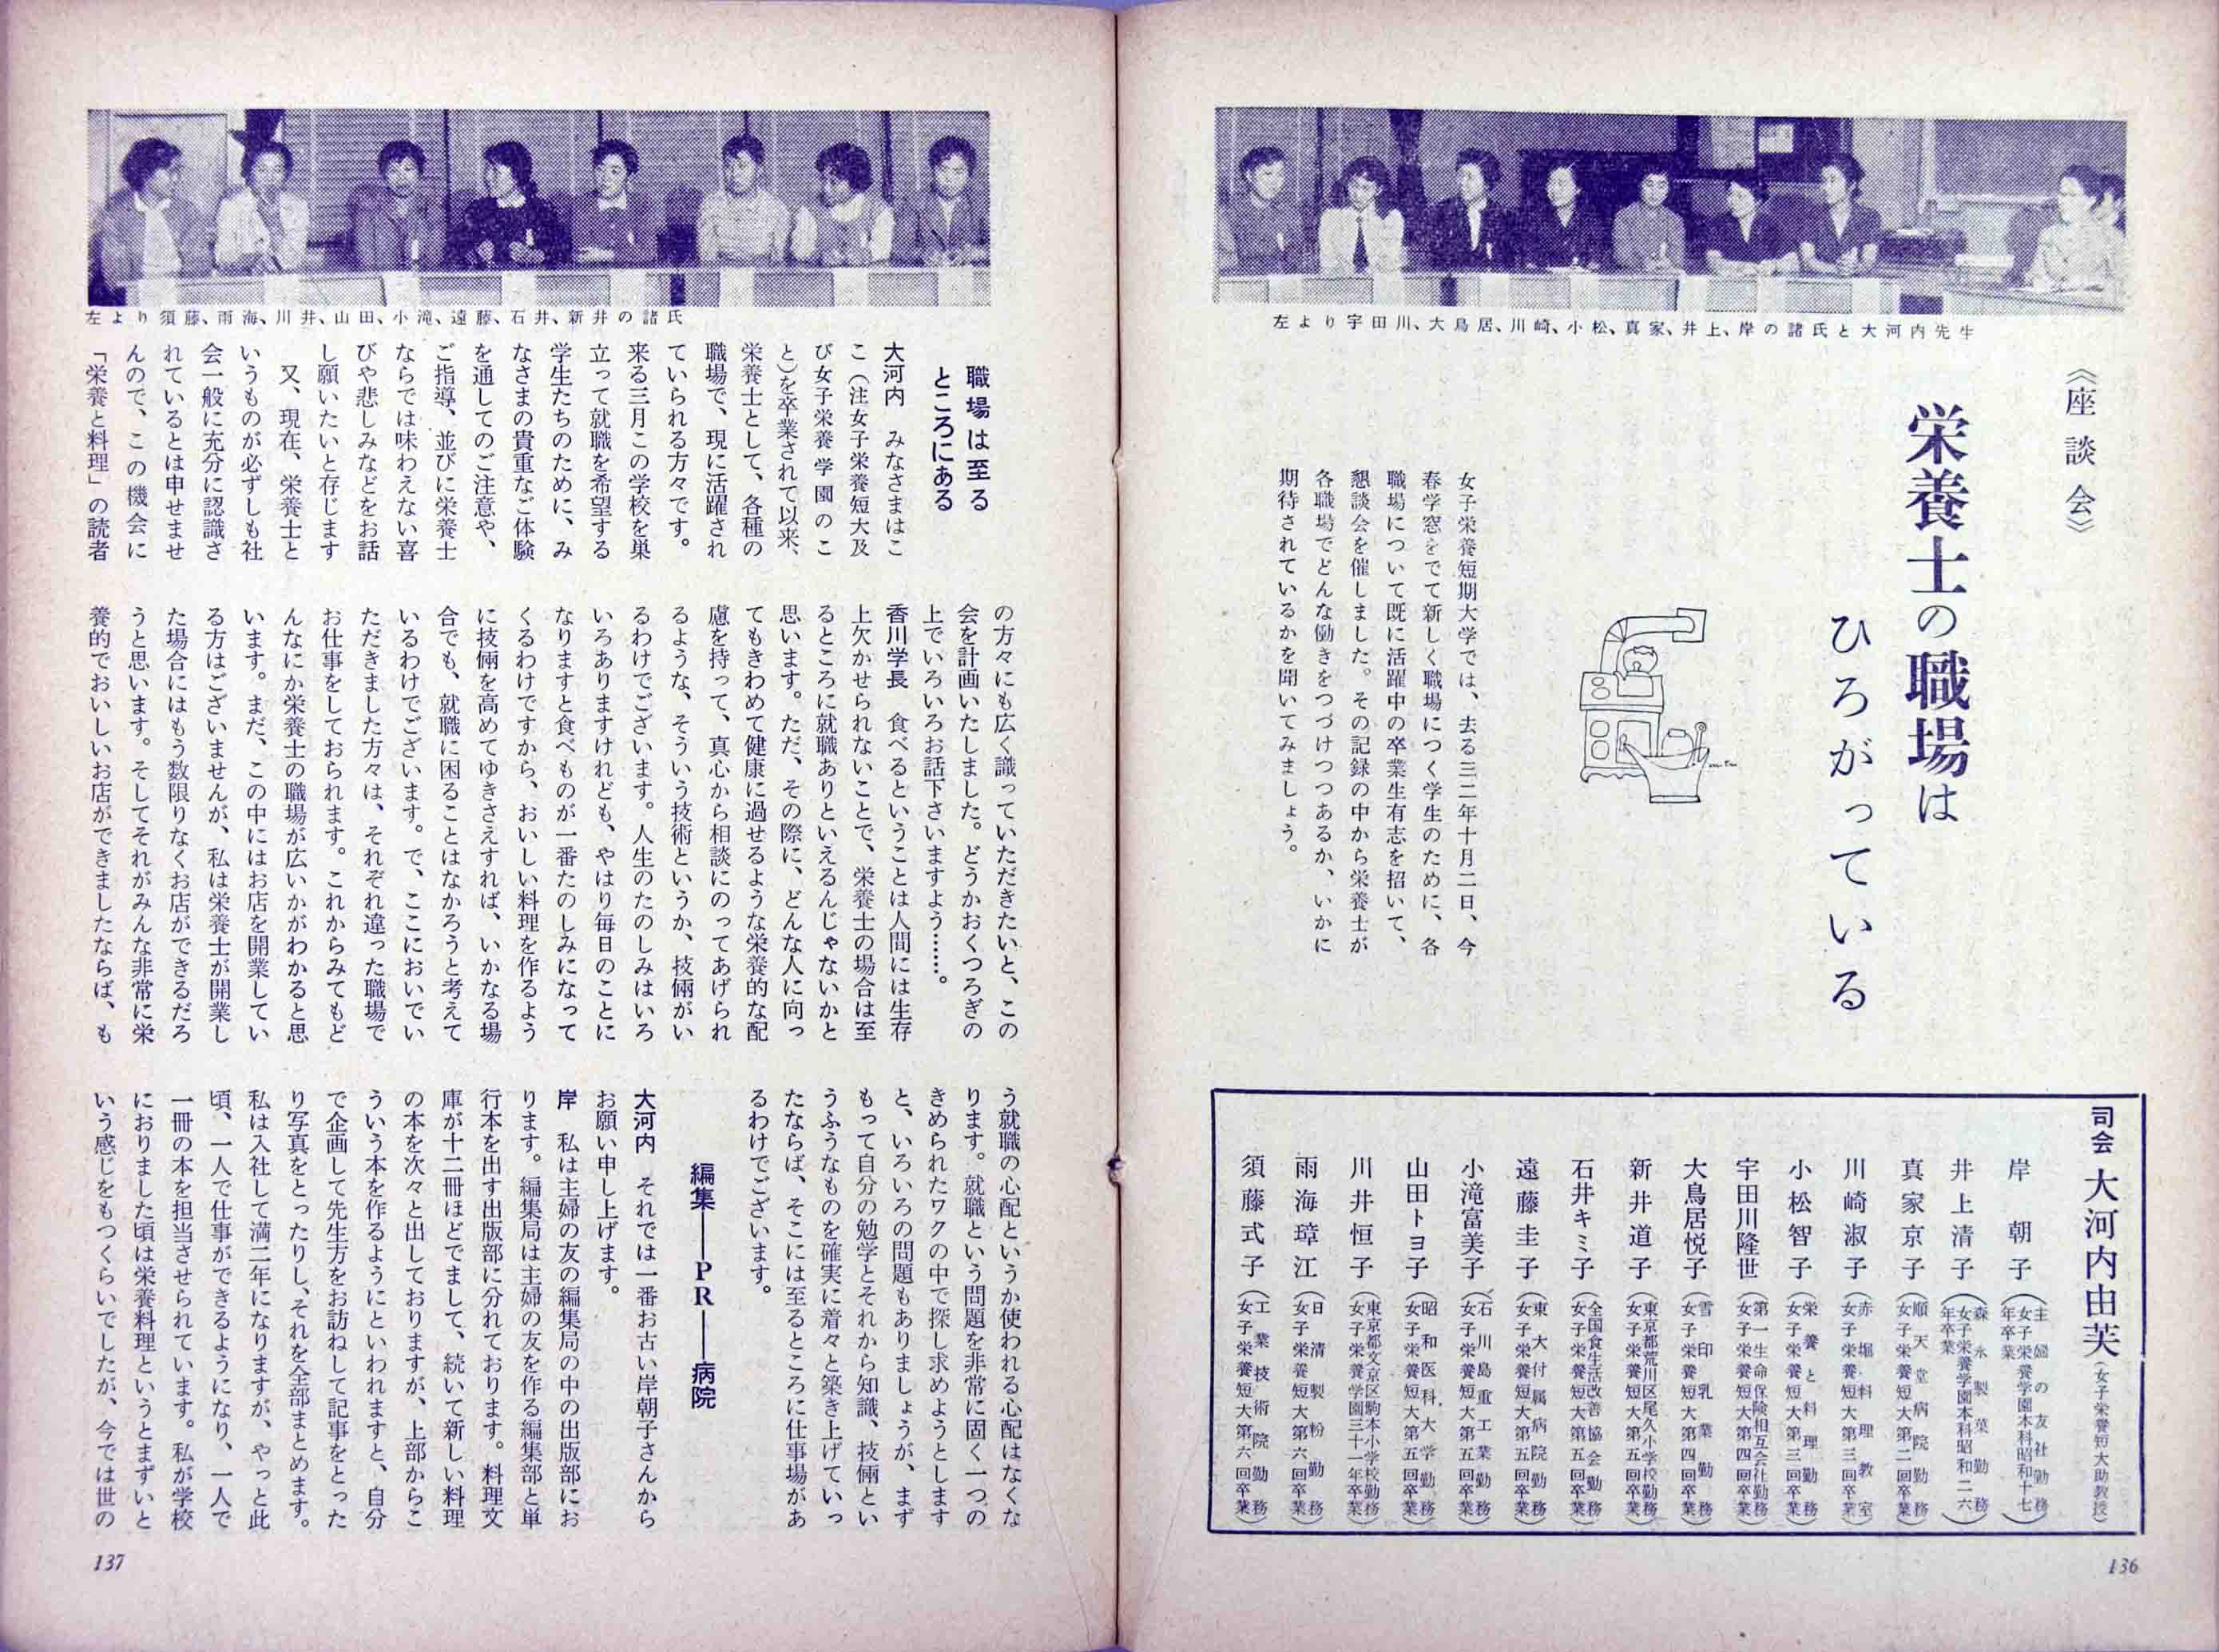 左より宇田川、大鳥居、川崎、小松、真家、井上、岸の諸氏と大河内先生
《座談会》
栄養士の職場は
ひろがっている
女子栄養短期大学では、去る三二年十月二日、今
春学窓をでて新しく職場につく学生のために、各
職場について既に活躍中の卒業生有志を招いて、
懇談会を催しました。その記録の中から栄養士が
各職場でどんな働きをつづけつつあるか、いかに
期待されているかを聞いてみましょう。
司会 大河内由芙(女子栄養短大助教授)
岸 朝子(主婦の友社勤務 女子栄養学園本科昭和十七年卒業)
井上清子(森永製菓勤務 女子栄養学園本科昭和二六年卒業)
真家京子(順天堂病院勤務 女子栄養短大第二回卒業)
川崎淑子(赤堀料理教室 女子栄養短大第三回卒業)
小松智子(栄養と料理勤務 女子栄養短大第三回卒業)
宇田川隆世(第一生命保険相互会社勤務 女子栄養短大第四回卒業)
大鳥居悦子(雪印乳業勤務 女子栄養短大第四回卒業)
新井道子(東京都荒川区尾久小学校勤務 女子栄養短大第五回卒業)
石井キミ子(全国食生活改善協会勤務 女子栄養短大第五回卒業)
遠藤圭子(東大付属病院勤務 女子栄養短大第五回卒業)
小滝富美子(石川島重工業勤務 女子栄養短大第五回卒業)
山田トヨ子(昭和医科大学勤務 女子栄養短大第五回卒業)
川井恒子(東京都文京区駒本小学校勤務 女子栄養学園三十一年卒業)
雨海璋江(日清製粉勤務 女子栄養短大第六回卒業)
須藤式子(工業技術院勤務 女子栄養短大第六回卒業)
136
左より須藤、雨海、川井、山田、小滝、遠藤、石井、新井の諸氏
職場は至る
ところにある
大河内 みなさまはこ
こ(注女子栄養短大及
び女子栄養学園のこ
と)を卒業されて以来、
栄養士として、各種の
職場で、現に活躍され
ていられる方々です。
来る三月この学校を巣
立って就職を希望する
学生たちのために、み
なさまの貴重なご体験
を通してのご注意や、
ご指導、並びに栄養士
ならでは味わえない喜
びや悲しみなどをお話
し願いたいと存じます
又、現在、栄養士と
いうものが必ずしも社
会一般に充分に認識さ
れているとは申せませ
んので、この機会に
「栄養と料理」の読者
の方々にも広く識っていただきたいと、この
会を計画いたしました。どうかおくつろぎの
上でいろいろお話下さいますよう……。
香川学長 食べるということは人間には生存
上欠かせられないことで、栄養士の場合は至
るところに就職ありといえるんじゃないかと
思います。ただ、その際に、どんな人に向っ
てもきわめて健康に過せるような栄養的な配
慮を持って、真心から相談にのってあげられ
るような、そういう技術というか、技倆がい
るわけでございます。人生のたのしみはいろ
いろありますけれども、やはり毎日のことに
なりますと食べものが一番たのしみになって
くるわけですから、おいしい料理を作るよう
に技倆を高めてゆきさえすれば、いかなる場
合でも、就職に困ることはなかろうと考えて
いるわけでございます。で、ここにおいでい
ただきました方々は、それぞれ違った職場で
お仕事をしておられます。これからみてもど
んなにか栄養士の職場が広いかがわかると思
います。まだ、この中にはお店を開業してい
る方はございませんが、私は栄養士が開業し
た場合にはもう数限りなくお店ができるだろ
うと思います。そしてそれがみんな非常に栄
養的でおいしいお店ができましたならば、も
う就職の心配というか使われる心配はなくな
ります。就職という問題を非常に固く一つの
きめられたワクの中で探し求めようとします
と、いろいろの問題もありましょうが、まず
もって自分の勉学とそれから知識、技倆とい
うふうなものを確実に着々と築き上げていっ
たならば、そこには至るところに仕事場があ
るわけでございます。
編集——PR——病院
大河内 それでは一番お古い岸朝子さんから
お願い申し上げます。
岸 私は主婦の友の編集局の中の出版部にお
ります。編集局は主婦の友を作る編集部と単
行本を出す出版部に分れております。料理文
庫が十二冊ほどでまして、続いて新しい料理
の本を次々と出しておりますが、上部からこ
ういう本を作るようにといわれますと、自分
で企画して先生方をお訪ねして記事をとった
り写真をとったりし、それを全部まとめます。
私は入社して満二年になりますが、やっと此
頃、一人で仕事ができるようになり、一人で
一冊の本を担当させられています。私が学校
におりました頃は栄養料理というとまずいと
いう感じをもつくらいでしたが、今では世の
137